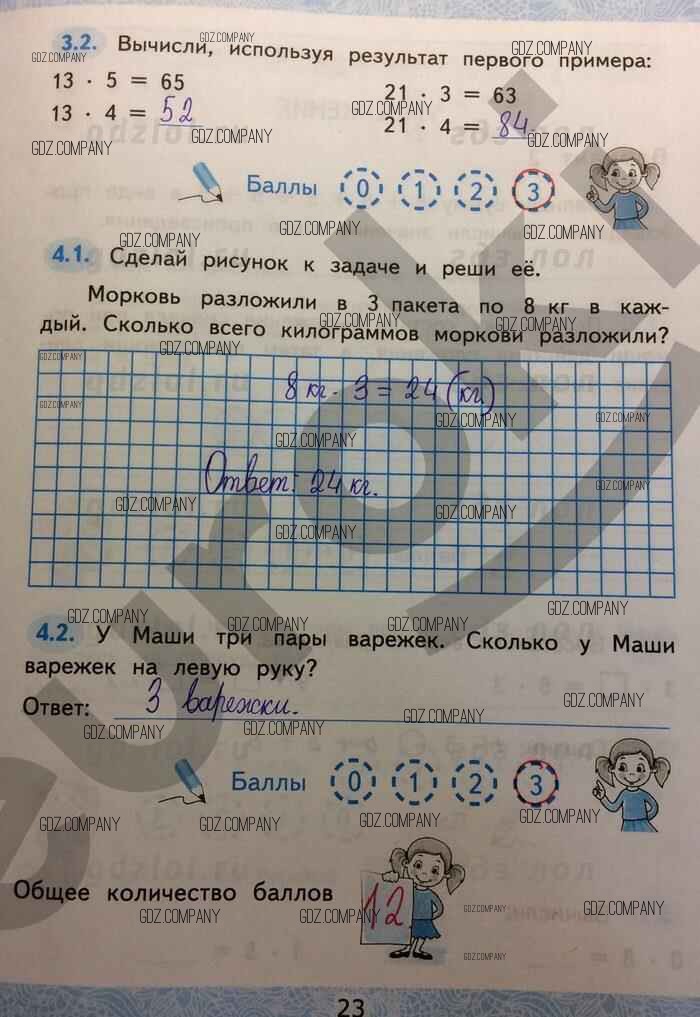 3.2. Вычисли, используя результат первого примера:
13 · 5 = 65
21 · 3 = 63
13 · 4 = 52
21 · 4 = 84
Баллы 0 1 2 3
4.1. Сделай рисунок к задаче и реши её.
Морковь разложили в 3 пакета по 8 кг в каж-
дый. Сколько всего килограммов моркови разложили?
8 кг · 3 = 24 (кг)
Ответ: 24 кг.
4.2. У Маши три пары варежек. Сколько у Маши
варежек на левую руку?
Ответ: 3 варежки.
Баллы 0 1 2 3
Общее количество баллов 12
23
GDZ.COMPANY
euroki